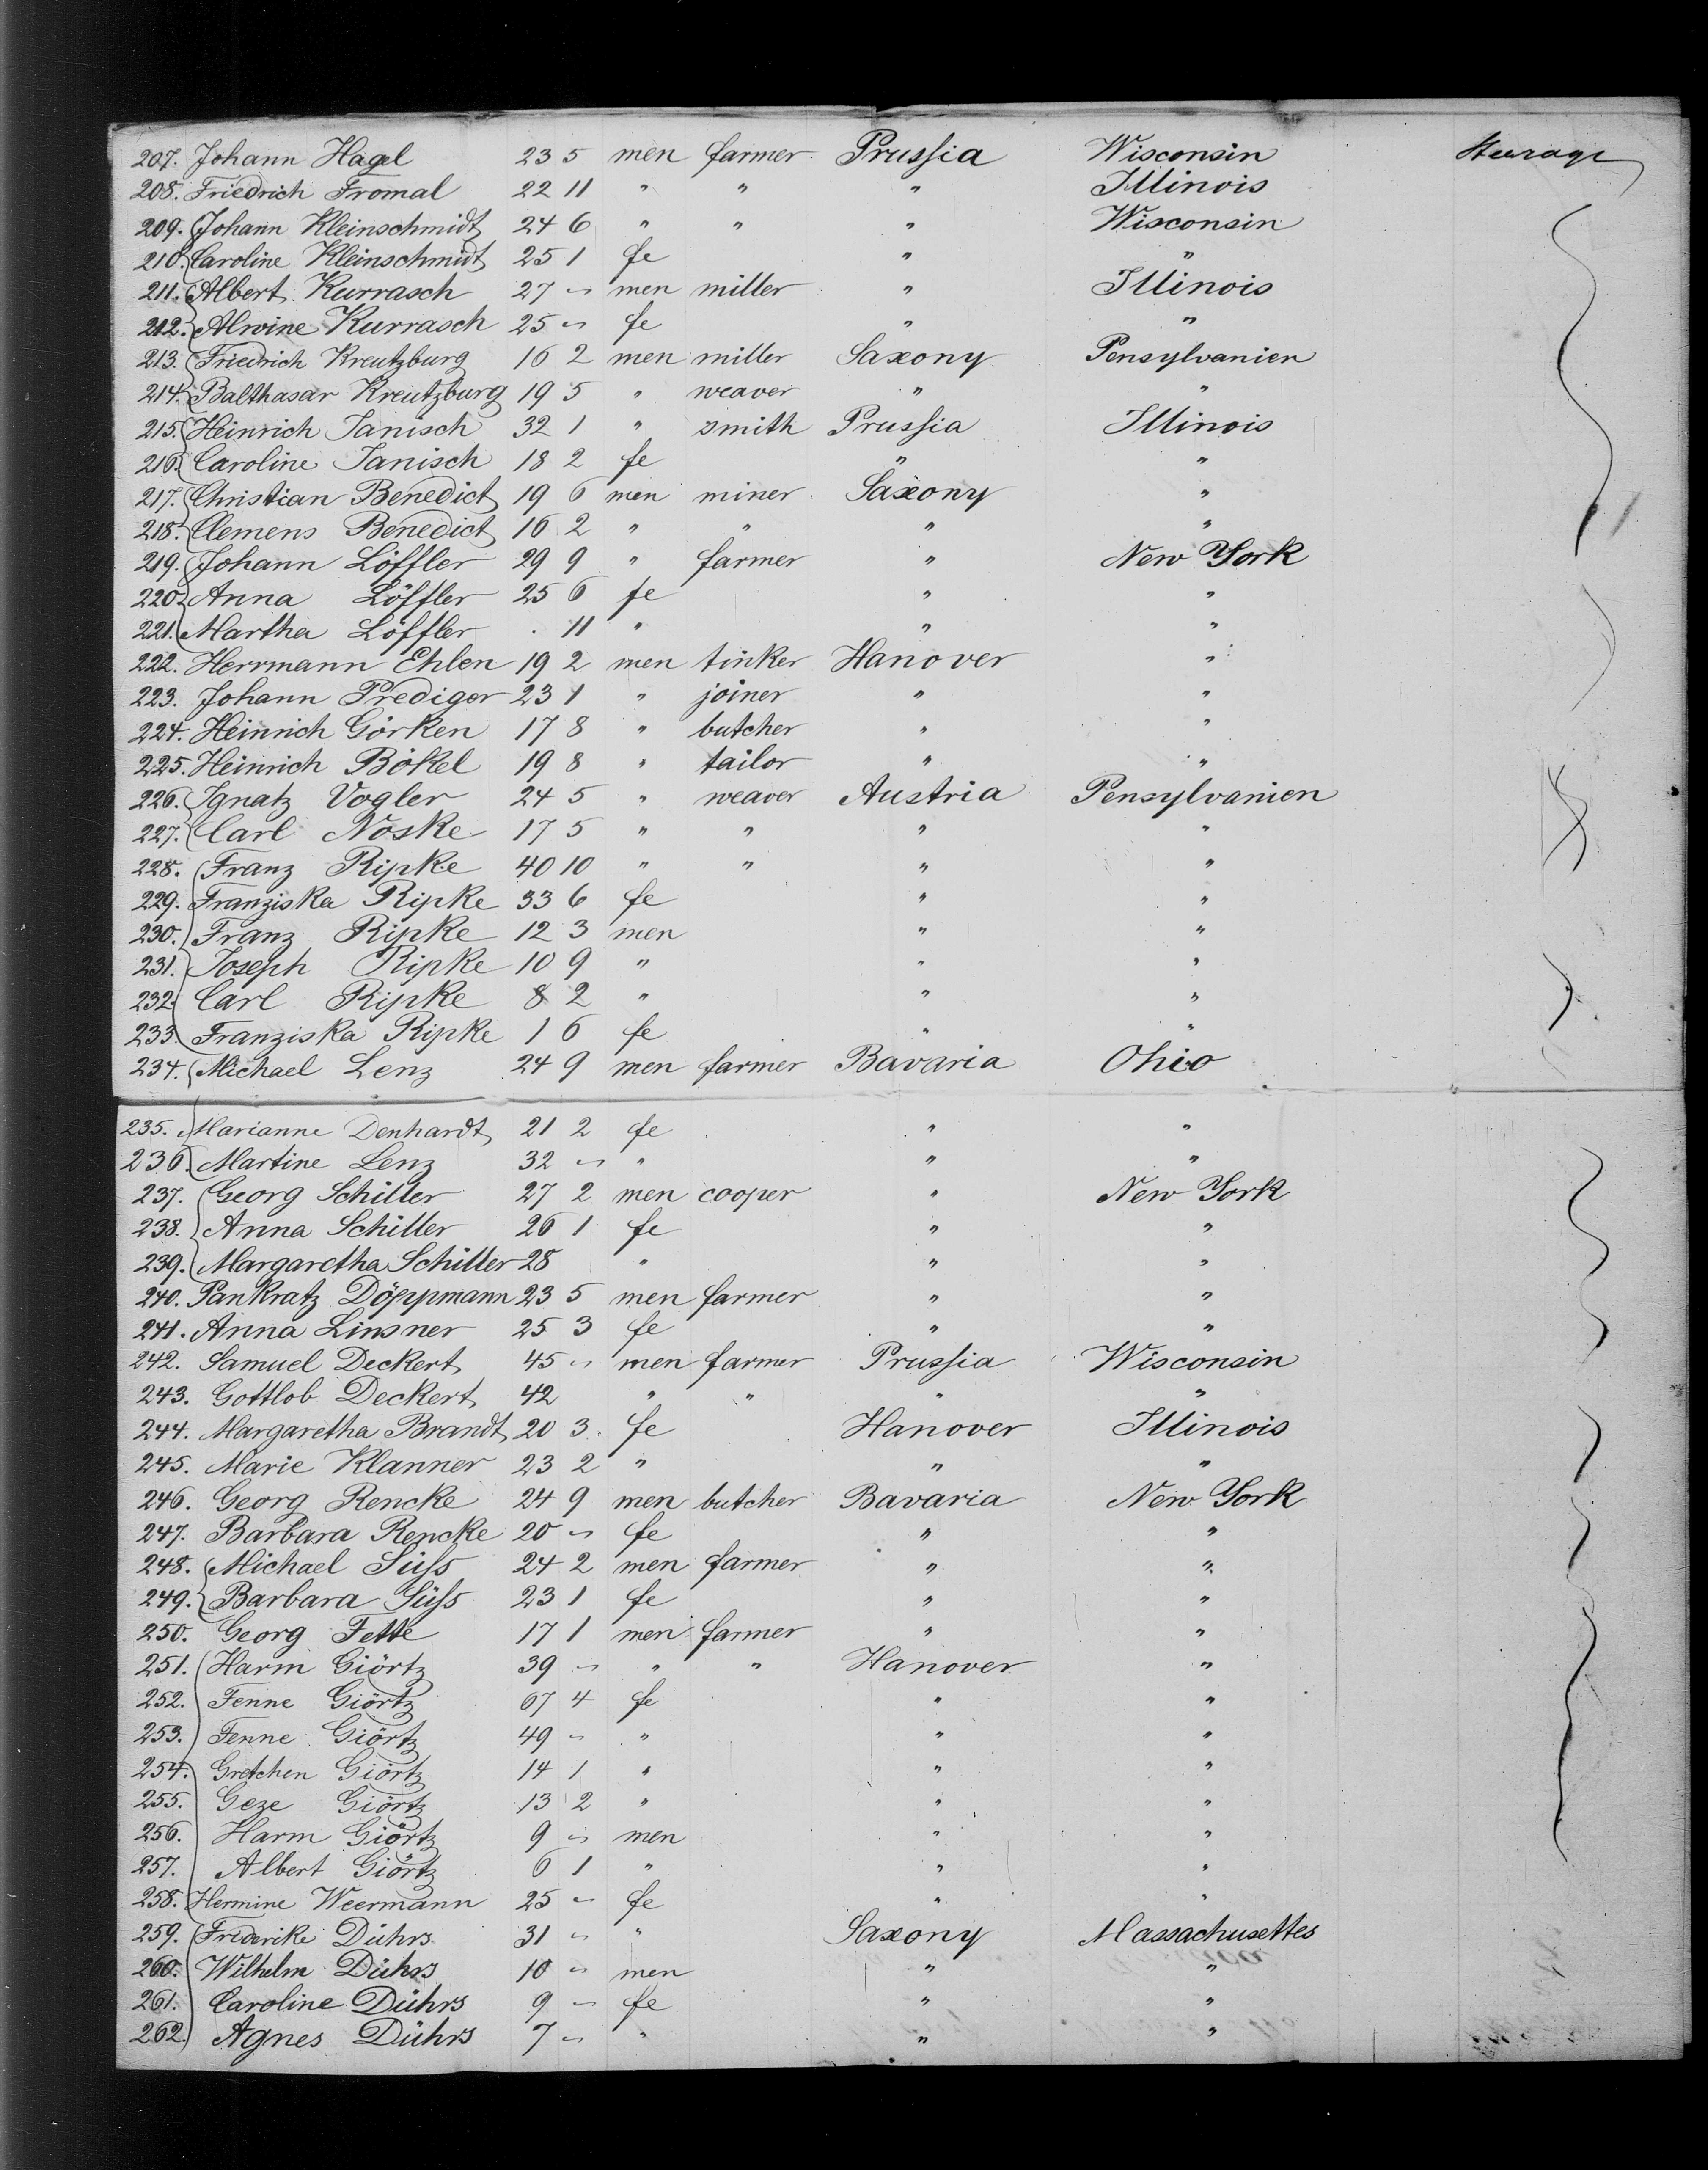 207. Johann Hagel 23 5 men farmer Prussia Wisconsin Steerage
208. Friedrich Fromal 22 11 " " " Illinois
209. Johann Kleinschmidt 24 6 " " " Wisconsin
210. Caroline Kleinschmidt 25 1 fe " "
211. Albert Kurrasch 27 " men miller " Illinois
212. Alwine Kurrasch 25 " fe " "
213. Friedrich Kreutzburg 16 2 men miller Saxony Pensylvanien
214. Balthasar Kreutzburg 19 5 " weaver " "
215. Heinrich Janisch 32 1 " smith Prussia Illinois
216. Caroline Janisch 18 2 fe " "
217. Christian Benedict 19 6 men miner Saxony "
218. Clemens Benedict 16 2 " " " "
219. Johann Löffler 29 9 " farmer " New York
220. Anna Löffler 25 6 fe " "
221. Martha Löffler . 11 " " "
222. Herrmann Ehlen 19 2 men tinker Hanover "
223. Johann Prediger 23 1 " joiner " "
224. Heinrich Görken 17 8 " butcher " "
225. Heinrich Bökel 19 8 " tailor " "
226. Ignatz Vogler 24 5 " weaver Austria Pensylvanien
227. Carl Noske 17 5 " " " "
228. Franz Ripke 40 10 " " " "
229. Franziska Ripke 33 6 fe " "
230. Franz Ripke 12 3 men " "
231. Joseph Ripke 10 9 " " "
232. Carl Ripke 8 2 " " "
233. Franziska Ripke 1 6 fe " "
234. Michael Lenz 24 9 men farmer Bavaria Ohio
235. Marianne Denhardt 21 2 fe " "
236. Martine Lenz 32 " " " "
237. Georg Schiller 27 2 men cooper " New York
238. Anna Schiller 26 1 fe " "
239. Margaretha Schiller 28 " " "
240. Pankratz Döppmann 23 5 men farmer " "
241. Anna Linsner 25 3 fe " "
242. Samuel Deckert 45 " men farmer Prussia Wisconsin
243. Gottlob Deckert 42 " " " "
244. Margaretha Brandt 20 3 fe Hanover Illinois
245. Marie Klanner 23 2 " " "
246. Georg Rencke 24 9 men butcher Bavaria New York
247. Barbara Rencke 20 " fe " "
248. Michael Süss 24 2 men farmer " "
249. Barbara Süss 23 1 fe " "
250. Georg Fette 17 1 men farmer " "
251. Harm Giörtz 39 " " " Hanover "
252. Fenne Giörtz 67 4 fe " "
253. Fenne Giörtz 49 " " " "
254. Gretchen Giörtz 14 1 " " "
255. Geze Giörtz 13 2 " " "
256. Harm Giörtz 9 " men " "
257. Albert Giörtz 6 1 " " "
258. Hermine Weermann 25 " fe " "
259. Frederike Dührs 31 " " Saxony Massachusettes
260. Wilhelm Dührs 10 " men " "
261. Caroline Dührs 9 " fe " "
262. Agnes Dührs 7 " " " "